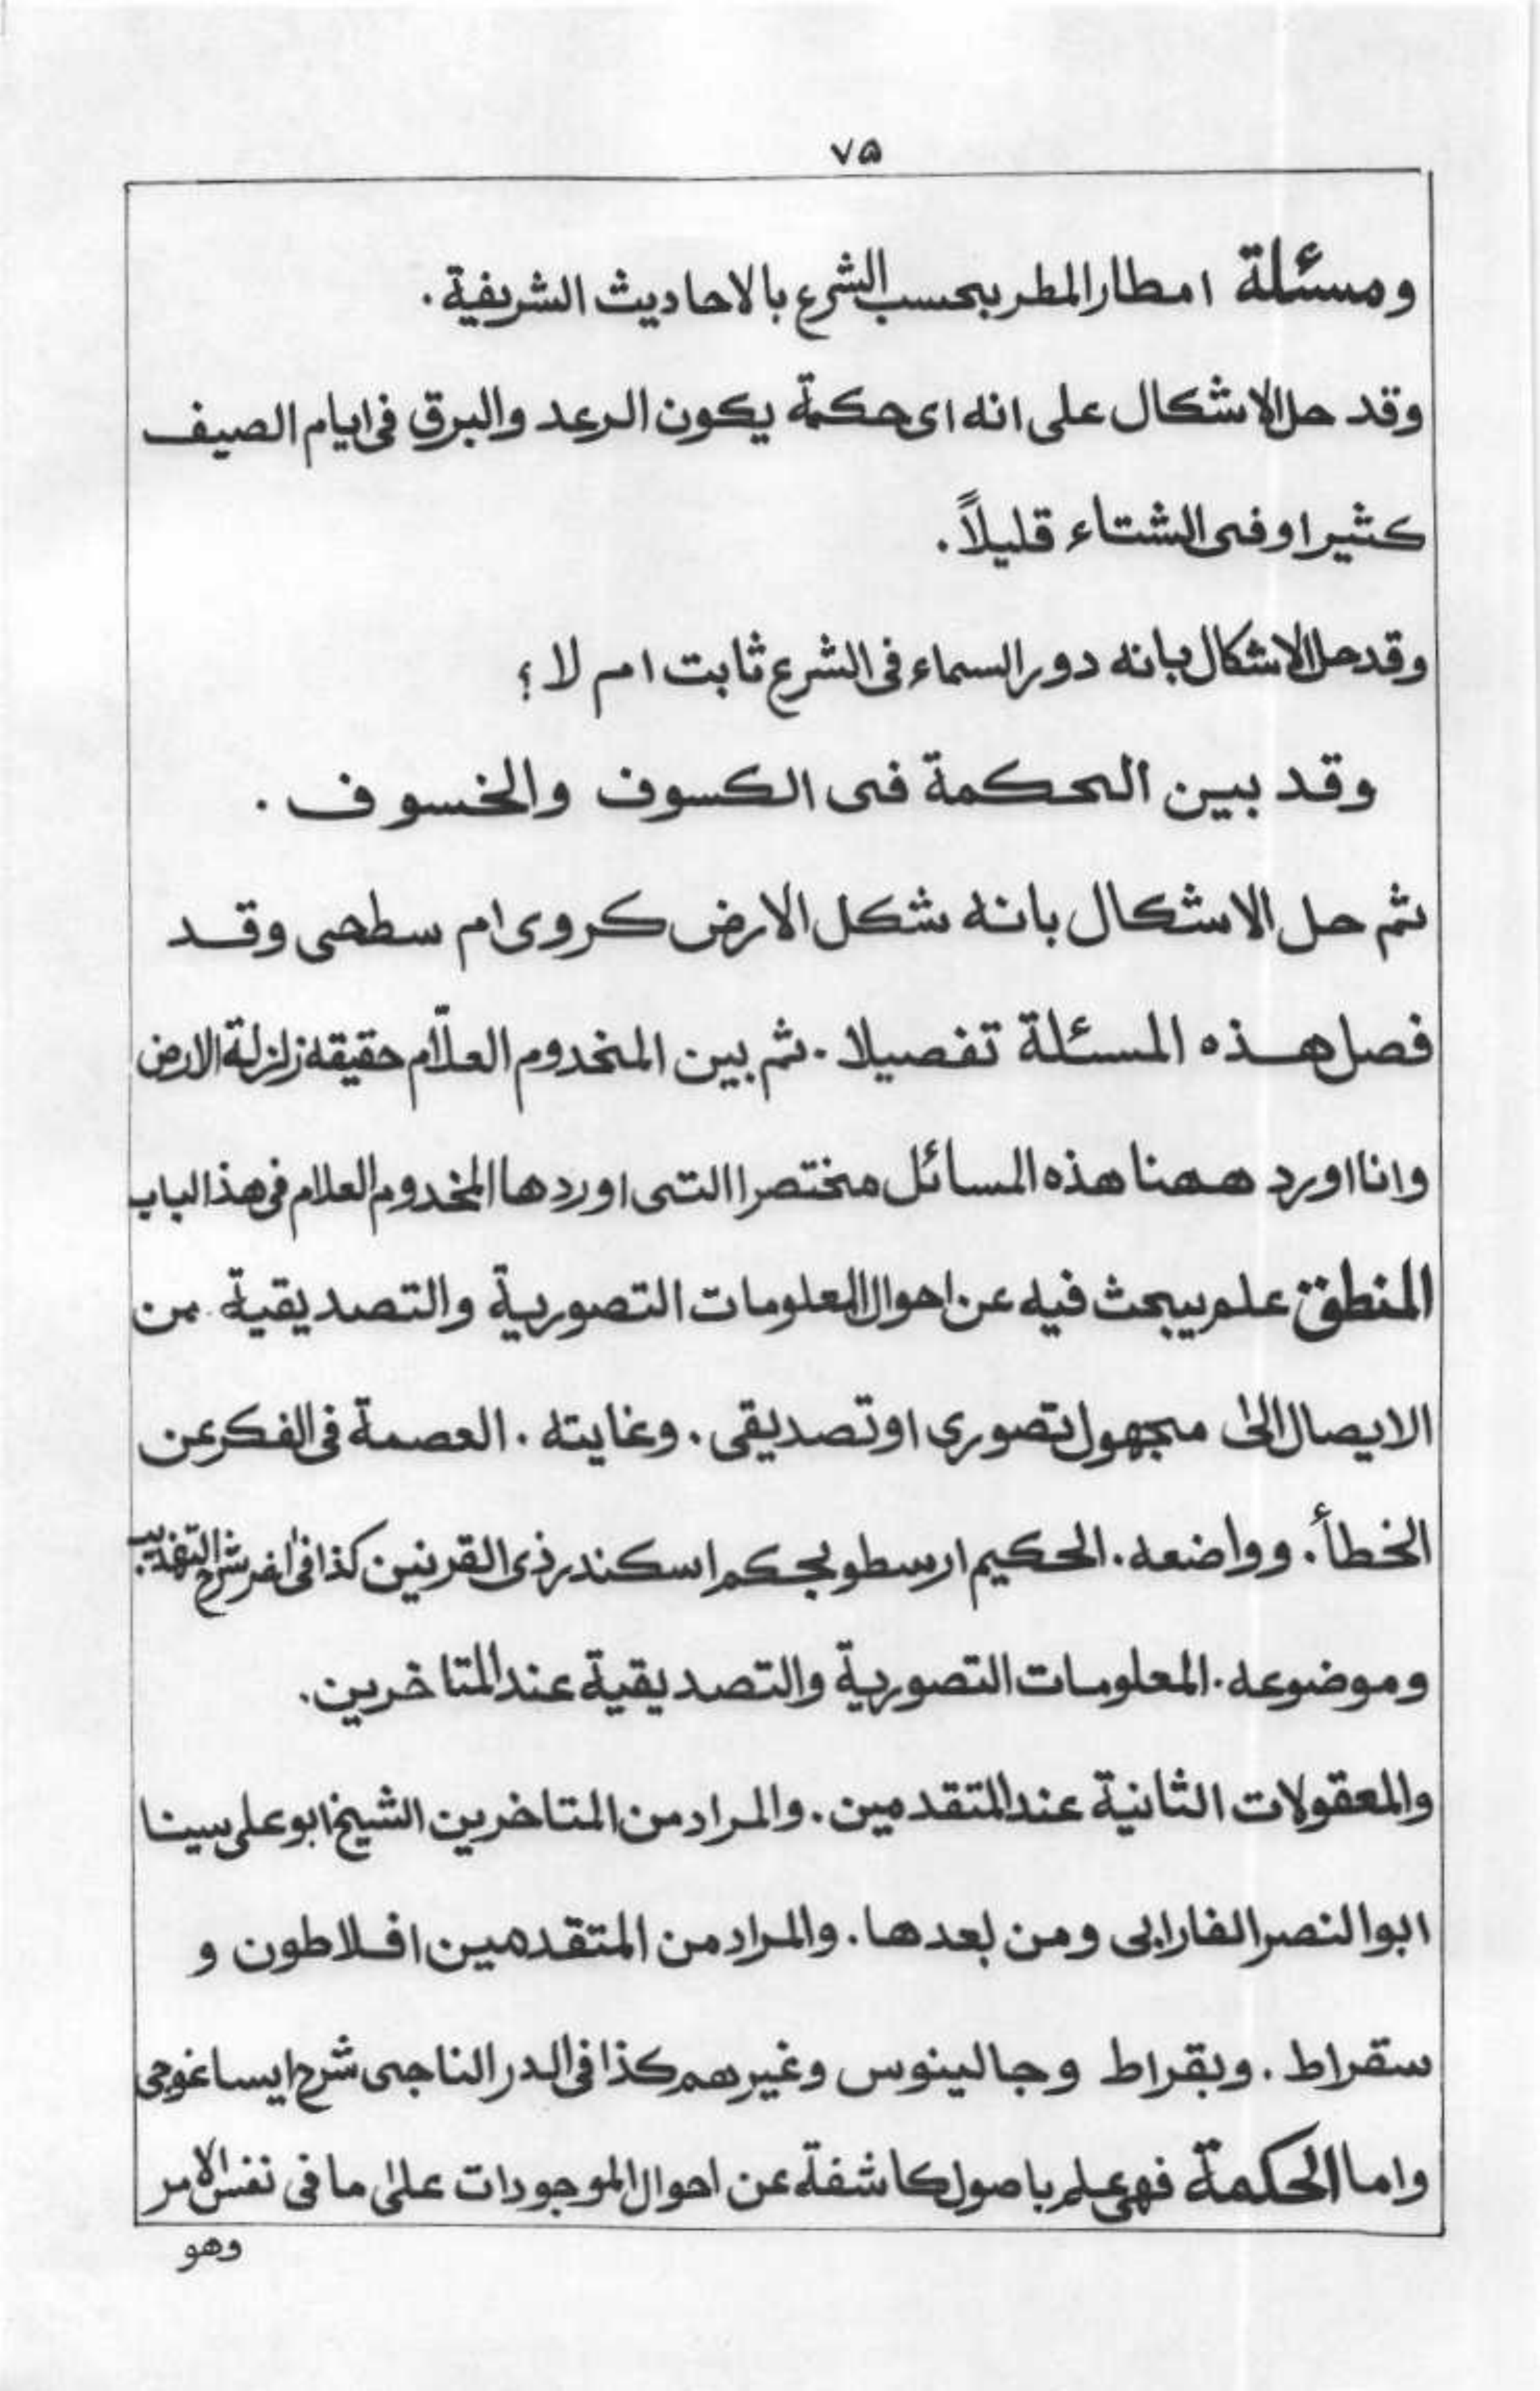 ٧۵
ومسئلة امطار المطر بحسب الشرع بالاحاديث الشريفية .
وقد حل الاشكال على انه اى حكمة يكون الرعد والبرق فى ايام الصيف
كثيرا وفى الشتاء قليلاً .
وقد حل الاشكال بانه دور السماء فى الشرع ثابت ام لا ؟
وقد بين الحكمة فى الكسوف والخسوف .
ثم حل الاشكال بانه شكل الارض كروى ام سطحى وقد
فصل هذه المسئلة تفصيلا . ثم بين المخدوم العلّام حقيقه زلزلة الارض
وانا اورد ههنا هذه المسائل مختصرا التى اوردها المخدوم العلام فى هذا الباب
المنطق علم يبحث فيه عن احوال المعلومات التصورية والتصديقية من
الايصال الىٰ مجهول تصورى او تصديقى . وغايته . العصمة فى الفكر عن
الخطأ . وواضعه . الحكيم ارسطو بحكم اسكندر ذى القرنين كذا فى اخر شرح التهذيب
وموضوعه . المعلومات التصورية والتصديقية عند المتاخرين .
والمعقولات الثانية عند المتقدمين . والمراد من المتاخرين الشيخ ابو على سينا
ابوالنصر الفارابى ومن بعدها . والمراد من المتقدمين افلاطون و
سقراط . وبقراط وجالينوس وغيرهم كذا فى الدر الناجى شرح ايساغوجى
واما الحكمة فهى علم باصول كاشفة عن احوال الموجودات علىٰ ما فى نفس الامر
وهو